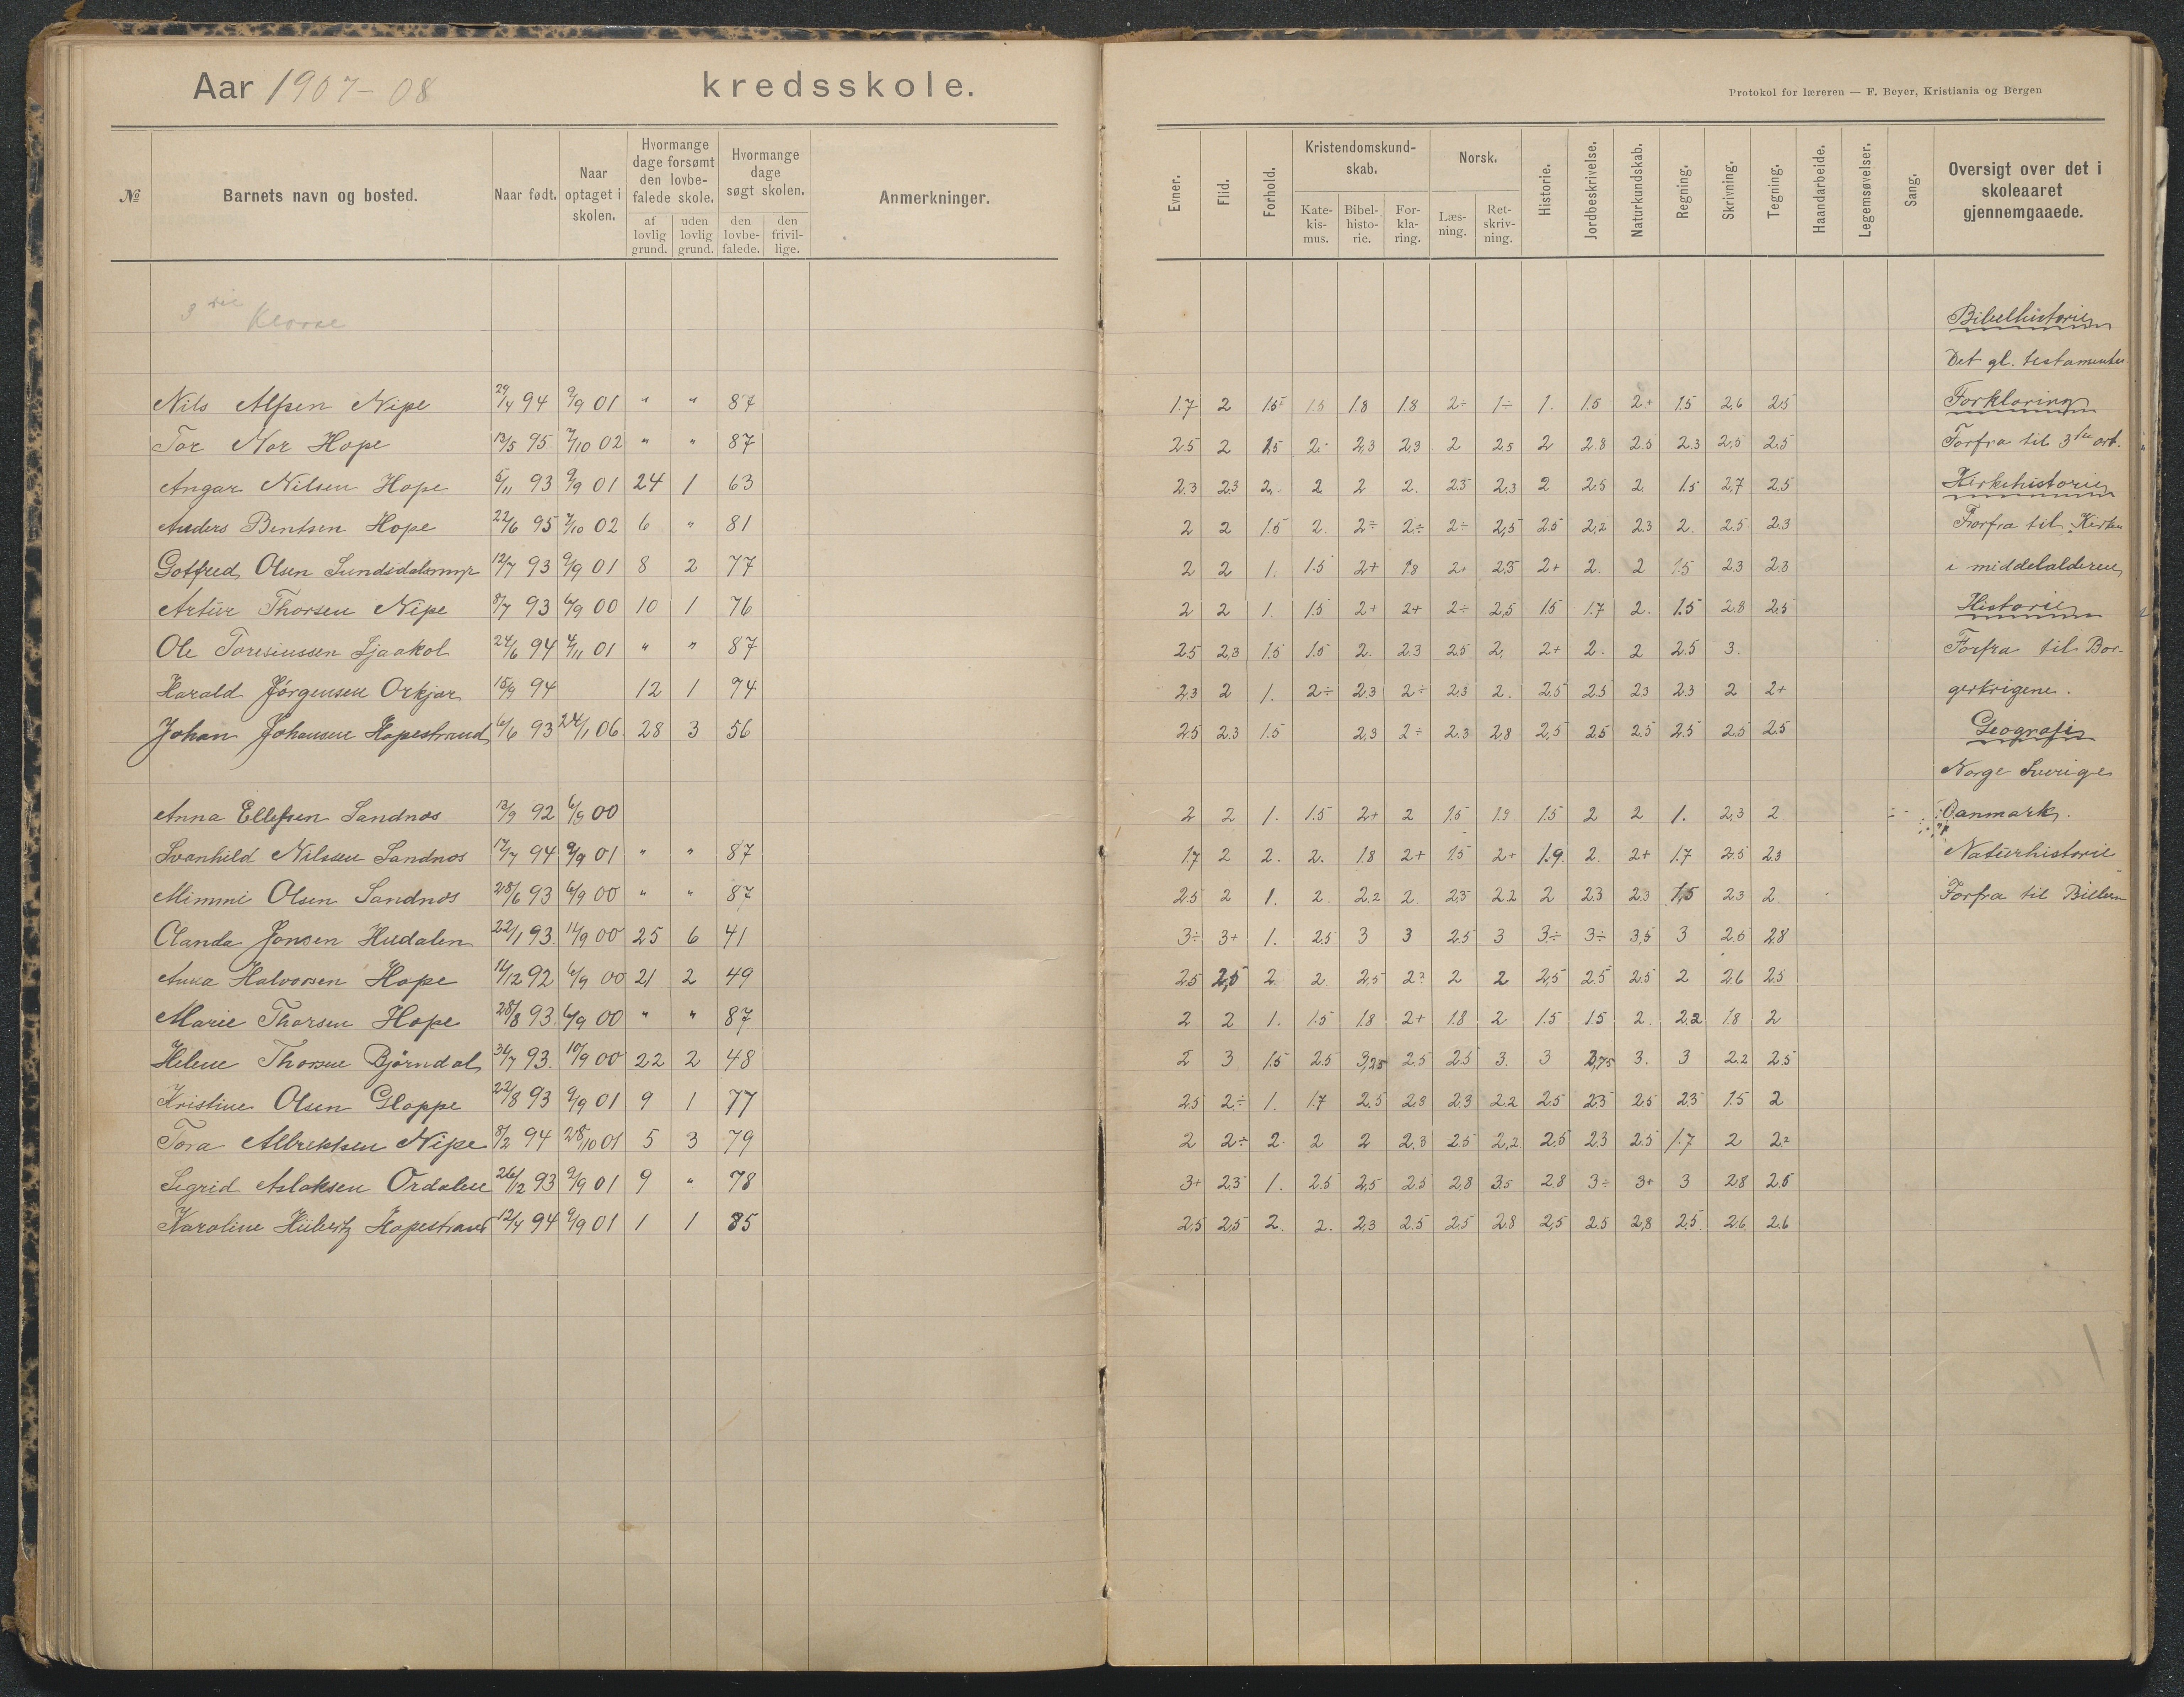 Aar 1907-08 kredsskole.
Protokol for læreren — F. Beyer, Kristiania og Bergen
№ Barnets navn og bosted. Naar født. Naar optaget i skolen. Hvormange dage forsømt den lovbefalede skole. af lovlig grund. uden lovlig grund. Hvormange dage søgt skolen. den lovbefalede. den frivillige. Anmerkninger. Evner. Flid. Forhold. Kristendomskundskab. Katekismus. Bibelhistorie. Forklaring. Norsk. Læsning. Retskrivning. Historie. Jordbeskrivelse. Naturkundskab. Regning. Skrivning. Tegning. Haandarbeide. Legemsøvelser. Sang. Oversigt over det i skoleaaret gjennemgaaede.
3die Klasse
Bibelhistorie
Det gl. testamente
Nils Alfsen Nipe 29/4 94 9/9 01 " " 87 1.7 2 1.5 1.5 1.8 1.8 2÷ 1÷ 1. 1.5 2+ 1.5 2,6 2.5 Forklaring
Tor Nor Hope 13/5 95 7/10 02 " " 87 2.5 2 1.5 2. 2,3 2,3 2 2.5 2 2.8 2.5 2.3 2,5 2.5 Forfra til 3die art.
Angar Nilsen Hope 5/11 93 9/9 01 24 1 63 2.3 2.3 2. 2 2 2. 2.5 2,3 2 2.5 2. 1.5 2,7 2.5 Kirkehistorie
Anders Bentsen Hope 22/6 95 7/10 02 6 " 81 2 2 1.5 2. 2÷ 2÷ 2÷ 2,5 2.5 2,2 2.3 2. 2.5 2.3 Forfra til Kirken
Gotfred Olsen Sundsdalsmyr 12/7 93 9/9 01 8 2 77 2 2 1. 1.5 2+ 1.8 2+ 2.5 2+ 2. 2 1.5 2.3 2.3 i middelalderen
Artür Thorsen Nipe 8/7 93 6/9 00 10 1 76 2 2 1. 1.5 2+ 2+ 2÷ 2,5 1.5 1.7 2. 1.5 2.8 2.5 Historie
Ole Toresiussen Ljaakol 24/6 94 4/11 01 " " 87 2.5 2,3 1.5 1.5 2. 2.3 2.5 2. 2+ 2. 2 2.5 3. Forfra til Bor-
Harald Jørgensen Orkjær 15/9 94 12 1 74 2.3 2 1. 2÷ 2,3 2÷ 2,3 2. 2,5 2.5 2.3 2.3 2 2+ gerkrigene.
Johan Johansen Hopestrand 6/6 93 24/1 06. 28 3 56 2.5 2.3 1.5 2,3 2÷ 2.3 2,8 2,5 2.5 2.5 2.5 2.5 2.5 Geografi
Norge Sverige
Anna Ellefsen Sandnes 13/9 92 6/9 00 2 2 1. 1.5 2+ 2 1.5 1.9 1.5 2 2 1. 2,3 2 Danmark.
Svanhild Nilssen Sandnes 17/7 94 9/9 01 " " 87 1.7 2 2. 2. 1.8 2+ 1.5 2+ 1.9. 2. 2+ 1.7 2.5 2.3 Naturhistorie
Mimmi Olsen Sandnes 28/6 93 6/9 00 " " 87 2.5 2 1. 2. 2.2 2. 2.5 2.2 2 2.3 2.3 1,5 2.3 2 Forfra til Billern
Olanda Jonsen Hudalen 22/1 93. 11/9 00 25 6 41 3÷ 3+ 1. 2.5 3 3 2.5 3 3÷ 3÷ 3,5 3 2.5 2.8
Anna Halvorsen Hope 14/12 92 6/9 00 21 2 49 2.5 2,5 2. 2. 2,5 2² 2 2. 2,5 2.5 2.5 2 2.6 2.5
Marie Thorsen Hope 28/8 93. 6/9 00 " " 87 2 2 1. 1.5 1.8 2+ 1.8 2 1.5 1.5 2. 2.2 1.8 2
Helene Thorsen Bjørndal 31/7 93. 10/9 00 22 2 48 2 3 1.5 2.5 3,25 2.5 2.5 3. 3 2,75 3. 3 2.2 2.5
Kristine Olsen Gloppe 22/8 93 9/9 01 9 1 77 2.5 2÷ 1. 1.7 2.5 2.3 2.3 2.2 2.5 2.5 2.5 2.3 1.5 2
Tora Albrektsen Nipe 8/2 94 28/10 01 5 3 79 2 2÷ 2. 2 2 2.3 2.5 2,2 2.5 2.3 2.5 1.7 2 2²
Sigrid Aslaksen Ordalen 26/12 93 9/9 01 9 " 78 3+ 2.5 1. 2.5 2,5 2.5 2,8 3.5 2.8 3÷ 3+ 3 2.8 2.5
Karoline Hübertz Hopestrand 12/4 94 9/9 01 1 1 85 2,5 2,5 2. 2. 2,3 2.5 2.5 2.8 2,5 2.5 2,8 2.5. 2.6 2.6